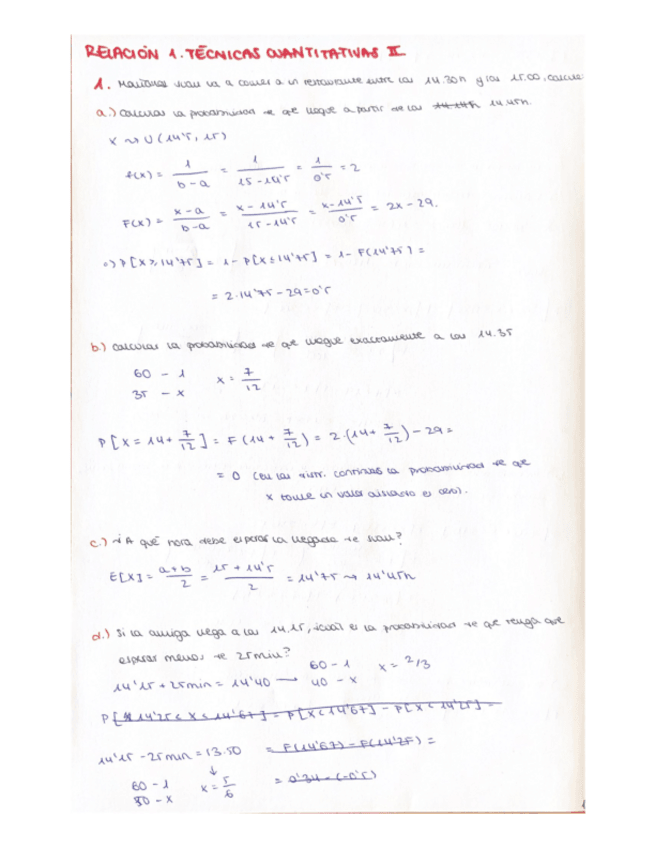 RELACIÓN 1. TÉCNICAS CUANTITATIVAS II
1. Mañanas Juan va a comer a un restaurante entre las 14.30h y las 15.00, calcule:
a.) Calcular la probabilidad de que llegue a partir de las 14.45h.
X ~> U(14'5, 15)
f(x) = 1/(b-a) = 1/(15-14'5) = 1/0'5 = 2
F(x) = (x-a)/(b-a) = (x-14'5)/(15-14'5) = (x-14'5)/0'5 = 2x - 29.
=> P[X ≥ 14'75] = 1 - P[X ≤ 14'75] = 1 - F(14'75) =
= 2·14'75 - 29 = 0'5
b.) Calcular la probabilidad de que llegue exactamente a las 14.35
60 - 1
35 - x
x = 7/12
P[X = 14 + 7/12] = F(14 + 7/12) = 2·(14 + 7/12) - 29 =
= 0 (en las distr. continuas la probabilidad de que
x tome un valor aislado es cero).
c.) ¿A qué hora debe esperar la llegada de Juan?
E[X] = (a+b)/2 = (15+14'5)/2 = 14'75 → 14'45h
d.) Si la amiga llega a las 14.15, ¿cuál es la probabilidad de que tenga que
esperar menos de 25min?
60 - 1
40 - x
x = 2/3
14'15 + 25min = 14'40 →
P[14'25 < X < 14'67] = P[X < 14'67] - P[X < 14'25] =
14'15 - 25min = 13.50
= F(14'67) - F(14'25) =
60 - 1
50 - x
x = 5/6
= 0'34 - (-0'5)